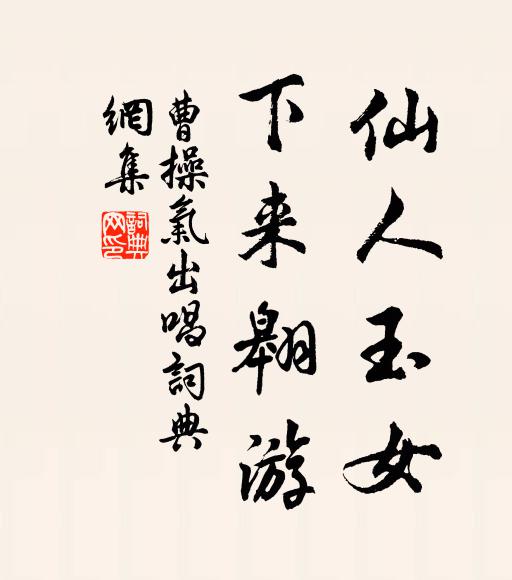 仙人玉女
下来翱游
曹操氣出唱詞典
網集
詞典
网印